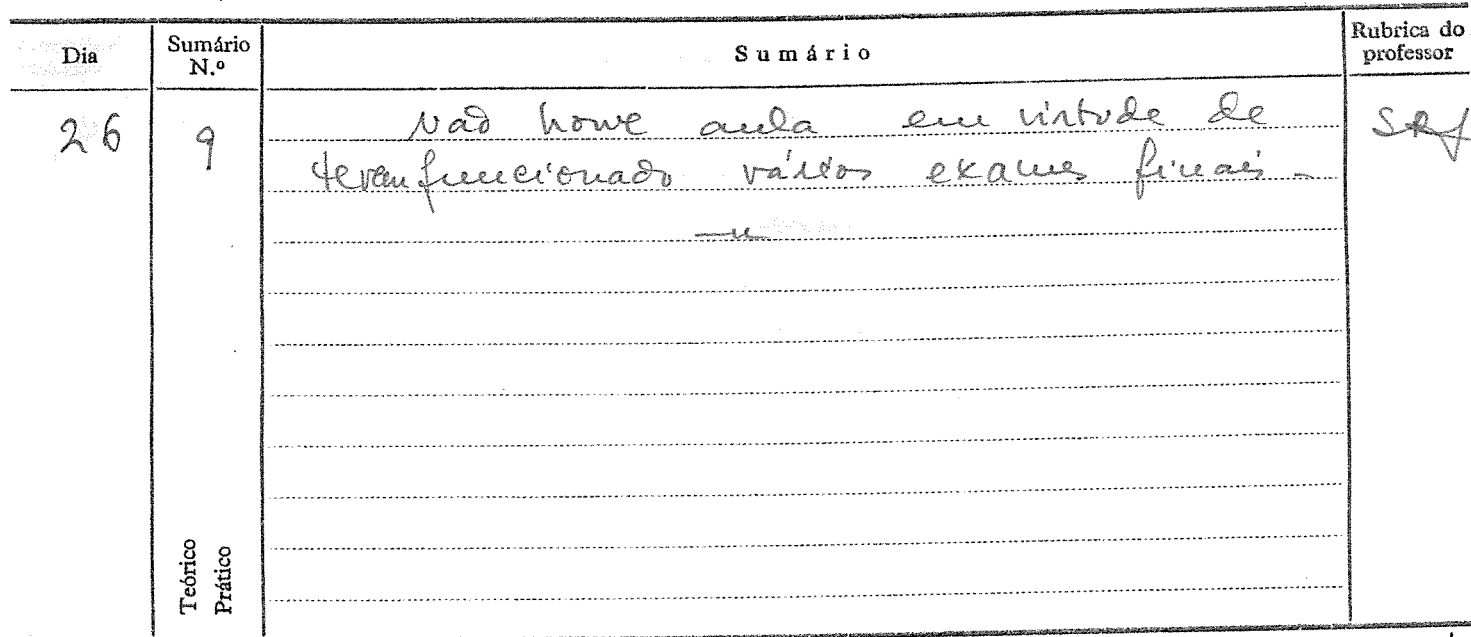 Dia
Sumário N.º
Sumário
Rubrica do professor
26
9
Não houve aula em virtude de
terem funcionado vários exames finais -
Teórico
Prático